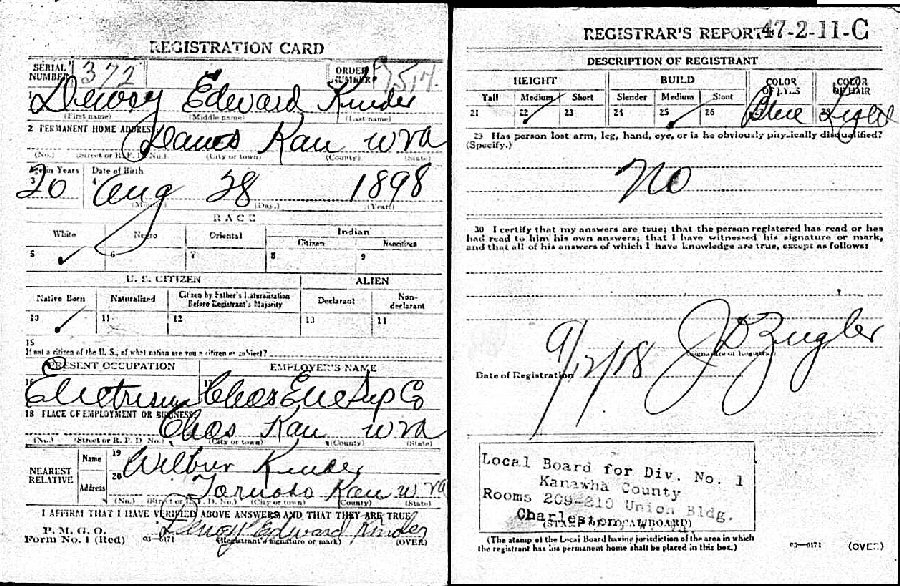 REGISTRATION CARD
SERIAL NUMBER 372
ORDER NUMBER
1 Dewey Edward Kinder
(First name) (Middle name) (Last name)
2 PERMANENT HOME ADDRESS
Kan W Va
(No.) (Street or R. F. D. No.) (City or town) (County) (State)
Age in Years Date of Birth
3 20 4 Aug 28 1898
(Month) (Day) (Year)
RACE
White Negro Oriental Indian
Citizen Noncitizen
5 6 7 8 9
U. S. CITIZEN ALIEN
Native Born Naturalized Citizen by Father's Naturalization Before Registrant's Majority Declarant Non-declarant
10 11 12 13
15
If not a citizen of the U. S., of what nation are you a citizen or subject?
PRESENT OCCUPATION EMPLOYER'S NAME
Chas Elec Co
18 PLACE OF EMPLOYMENT OR BUSINESS
Chas Kan W Va
(No.) (Street or R. F. D. No.) (City or town) (County) (State)
NEAREST RELATIVE Name 19 Wilbur Kinder
Address 20 Tornado Kan W Va
(No.) (Street or R. F. D. No.) (City or town) (County) (State)
I AFFIRM THAT I HAVE VERIFIED ABOVE ANSWERS AND THAT THEY ARE TRUE
P. M. G. O.
Form No. 1 (Red) 03—6171 Dewey Edward Kinder
(Registrant's signature or mark) (OVER)
REGISTRAR'S REPORT 47-2-11-C
DESCRIPTION OF REGISTRANT
HEIGHT BUILD COLOR OF EYES COLOR OF HAIR
Tall Medium Short Slender Medium Stout
21 22 23 24 25 26 Blue Light
29 Has person lost arm, leg, hand, eye, or is he obviously physically disqualified?
(Specify.)
No
30 I certify that my answers are true; that the person registered has read or has
had read to him his own answers; that I have witnessed his signature or mark,
and that all of his answers of which I have knowledge are true, except as follows:
(Signature of Registrar)
Date of Registration 9/12/18
Local Board for Div. No. 1
Kanawha County
Rooms 209-210 Union Bldg.
Charleston,
(STAMP OF LOCAL BOARD)
(The stamp of the Local Board having jurisdiction of the area in which
the registrant has his permanent home shall be placed in this box.)
03—6171 (OVER)